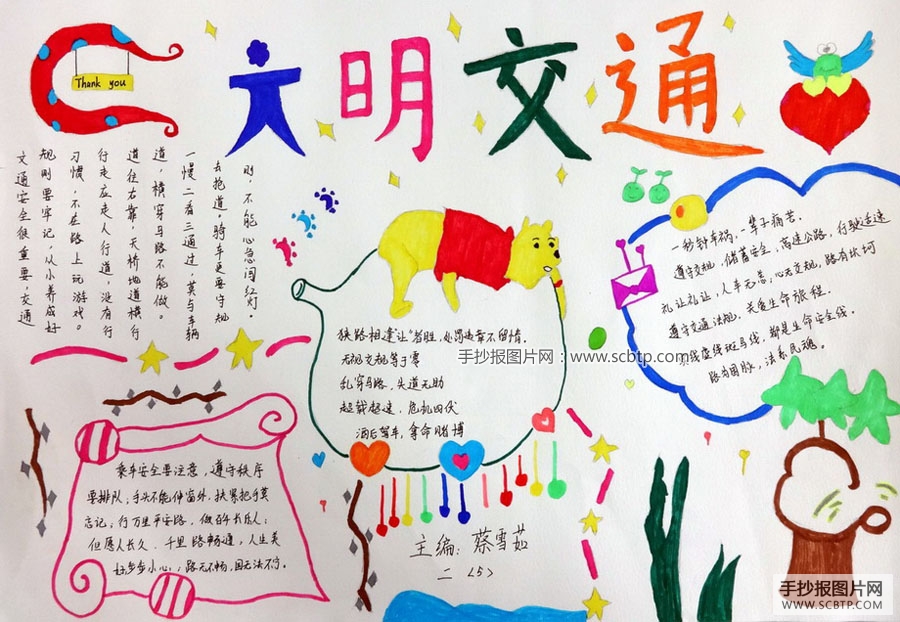 Thank you
文明交通
交通安全很重要，交通
规则要牢记，从小养成好
习惯，不在路上玩游戏。
行走应走人行道，没有行
道往右靠，天桥地道横行
道，横穿马路不能做。
一慢二看三通过，莫与车辆
去抢道，骑车更要守规
则，不能心急闯红灯。
一秒钟车祸，一辈子痛苦．
遵守交规，储蓄安全，高速公路，行驶适速
礼让礼让，人车无恙，心无交规，路有坎坷
遵守交通法规，关爱生命旅程．
线虚线斑马线，都是生命安全线．
路为国脉，法系民魂。
狭路相逢让"者胜，处罚违章不留情．
无视交规等于零
乱穿马路，失道无助
超载超速，危机四伏
酒后驾车，拿命赌博
手抄报图片网：www.scbtp.com
乘车安全要注意，遵守秩序
要排队；手头不能伸窗外，扶紧把手莫
忘记；行万里平安路，做百年长乐人；
但愿人长久，千里路畅通，人生美
好步步小心；路无不畅，因无法不行。
主编：蔡雪茹
二〈5〉
手抄报图片网
WWW.SCBTP.COM